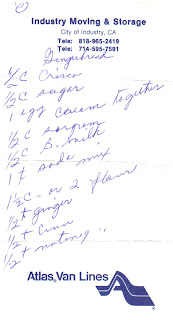 Industry Moving & Storage
City of Industry, CA
Tele: 818-965-2419
Tele: 714-595-7591
Gingerbread
1/2 C Crisco
1/2 C sugar
1 egg cream together
1/2 C sorgram
1/2 C B. milk
1 t soda mix
1 1/2 C - or 2 flour
1/2 t ginger
1/2 t Cinn
1/2 t nutmeg
Atlas Van Lines